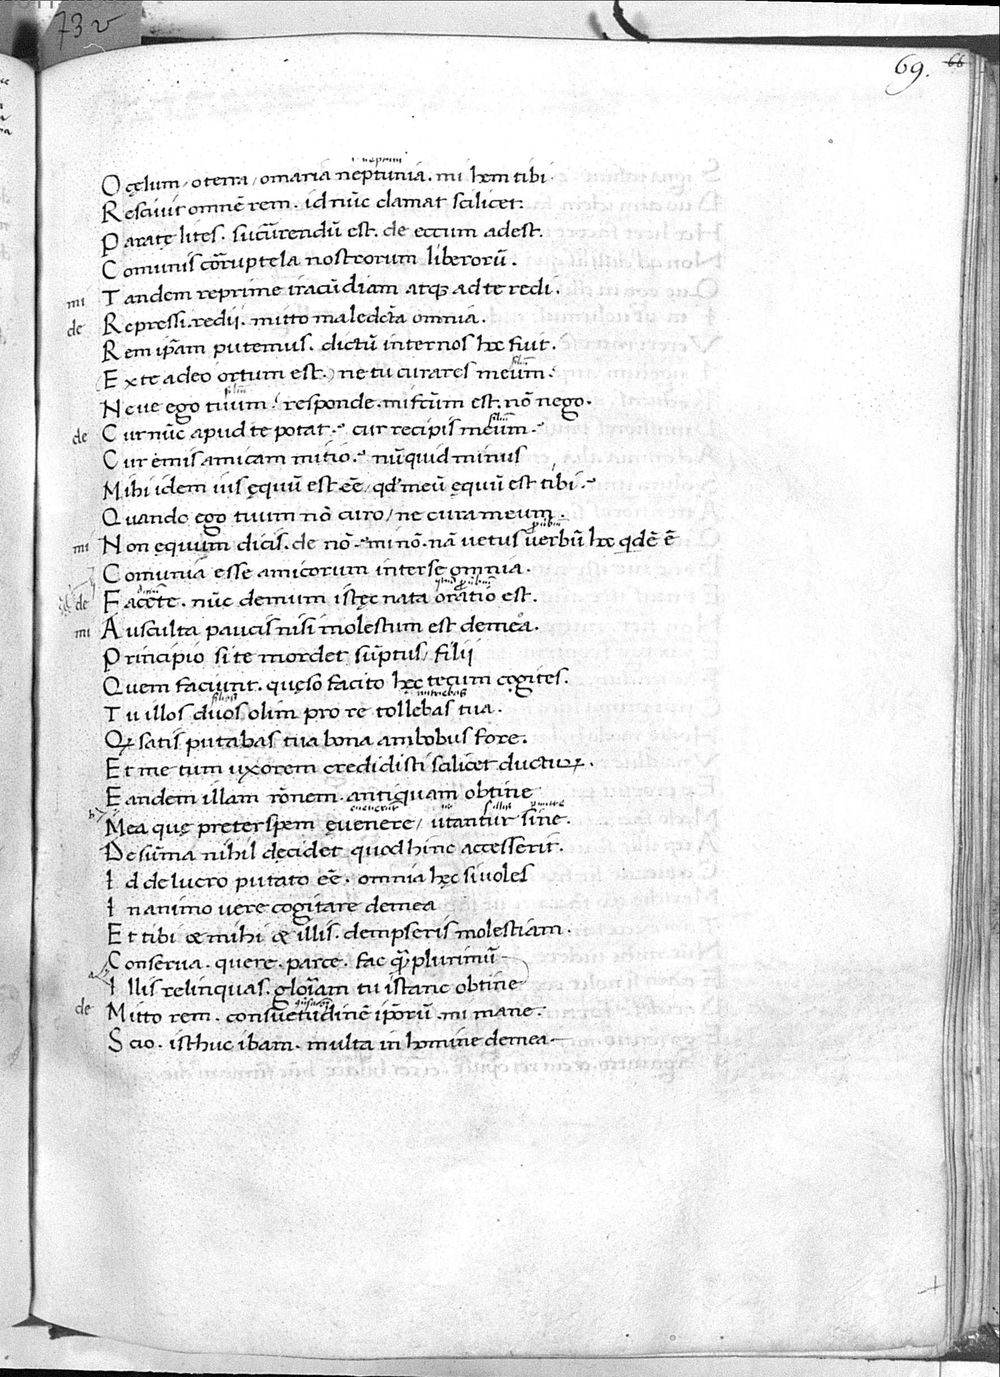 73 v
69. 66
i neptuni
O cęlum / o terra / o maria neptunia. mi hem tibi.
R esciuit omnē rem. id nūc clamat scilicet.
P aratę lites. sucūrendū est. de eccum adest.
C omunis corruptela nostrorum liberorū.
mi T andem reprime iracūdiam atqꝫ ad te redi.
de R epressi. redij. mitto maledcta omnia.
R em ip̄am putemus. dictū inter nos hęc fuit.
filiū
( E x te adeo ortum est.) ne tu curares meum.
filiū
N eue ego tuum? responde. mi fctum est. nō nego.
filiū
de C ur nūc apud te potat? cur recipis meum?
C ur emis amicam mitio? nūquid minus
M ihi idem ius ęquū est eē, qd' meū ęquū est tibi?
Q uando ego tuum nō curo / ne cura meum.
ꝓuerbiū
mi N on ęquum dicis. de nō? mi nō. nā uetus uerbū hoc qdē ē
C omunia esse amicorum inter se omnia.
de F acete. nūc demum istęc nata oratio est.
mi A usculta paucis nisi molestum est demea.
P rincipio si te mordet sūptus / filij
Q uem faciunt. quęso facito hęc tecum cogites.
filios nutriebas
T u illos duos olim pro re tollebas tua.
Q satis putabas tua bona ambobus fore.
E t me tum uxorem credidisti scilicet ducturꝫ.
E andem illam rōnem antiquam obtine
euenerint
b M ea quę preter spem euenere / utantur sine.
D e sūma nihil dęcidet quod hinc accesserit.
I d de lucro putato eē. omnia hęc si uoles
I n animo uere cogitare demea
E t tibi & mihi & illis. dempseris molestiam.
C onserua. quere. parce. fac q̄ plurimū
a I llis relinquas. gloriam tu istanc obtine
de M itto rem. consuetudinē ip̄orū. mi mane.
S cio. isthuc ibam. multa in homine demea